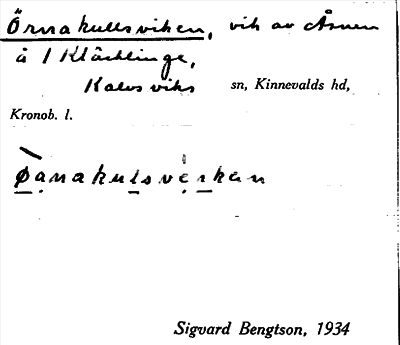 Örnakullsviken, vik av Åsnen
å 1 Kläcklinge,
Kalvsviks sn, Kinnevalds hd,
Kronob. l.
Øanakulsveikan
Sigvard Bengtson, 1934